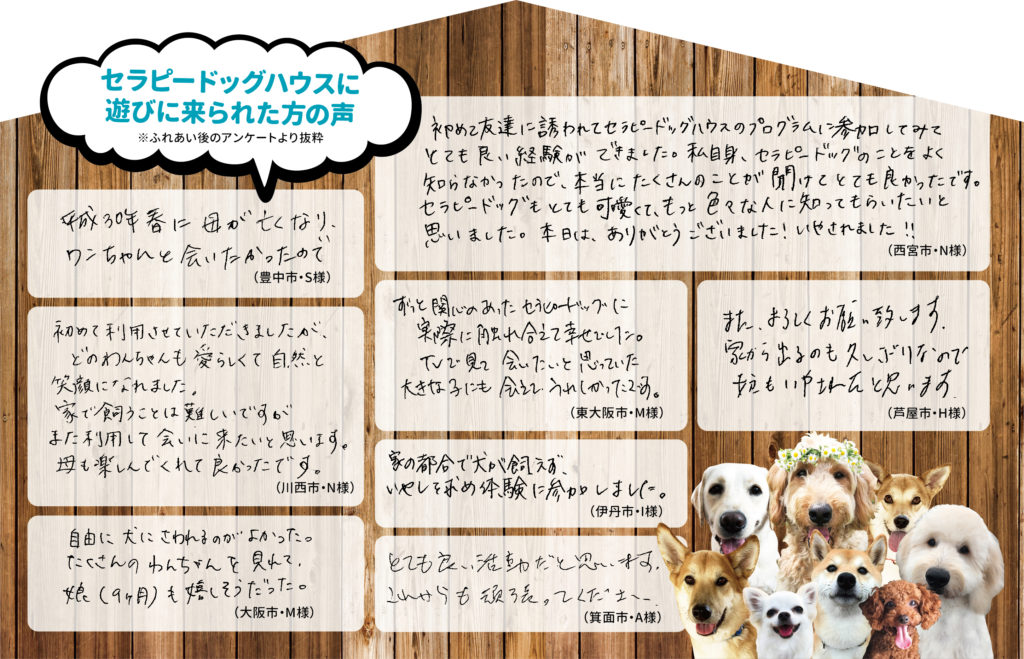 セラピードッグハウスに
遊びに来られた方の声
※ふれあい後のアンケートより抜粋
平成30年春に母が亡くなり、
ワンちゃんと会いたかったので
(豊中市・S様)
初めて友達に誘われてセラピードッグハウスのプログラムに参加してみて
とても良い経験ができました。私自身、セラピードッグのことをよく
知らなかったので、本当にたくさんのことが聞けてとても良かったです。
セラピードッグもとても可愛くて、もっと色々な人に知ってもらいたいと
思いました。本日は、ありがとうございました!いやされました!!
(西宮市・N様)
初めて利用させていただきましたが、
どのわんちゃんも愛らしくて自然と
笑顔になれました。
家で飼うことは難しいですが
また利用して会いに来たいと思います。
母も楽しんでくれて良かったです。
(川西市・N様)
ずっと関心のあったセラピードッグに
実際に触れ合えて幸せでした。
TVで見て会いたいと思っていた
大きな子にも会えてうれしかったです。
(東大阪市・M様)
また、よろしくお願い致します。
家から出るのも久しぶりなので
いやされたと思います。
(芦屋市・H様)
家の都合で犬が飼えず、
いやしを求め体験に参加しました。
(伊丹市・I様)
自由に犬にさわれるのがよかった。
たくさんのわんちゃんを見れて、
娘(9ヶ月)も嬉しそうだった。
(大阪市・M様)
とても良い活動だと思います。
これからも頑張ってください
(箕面市・A様)